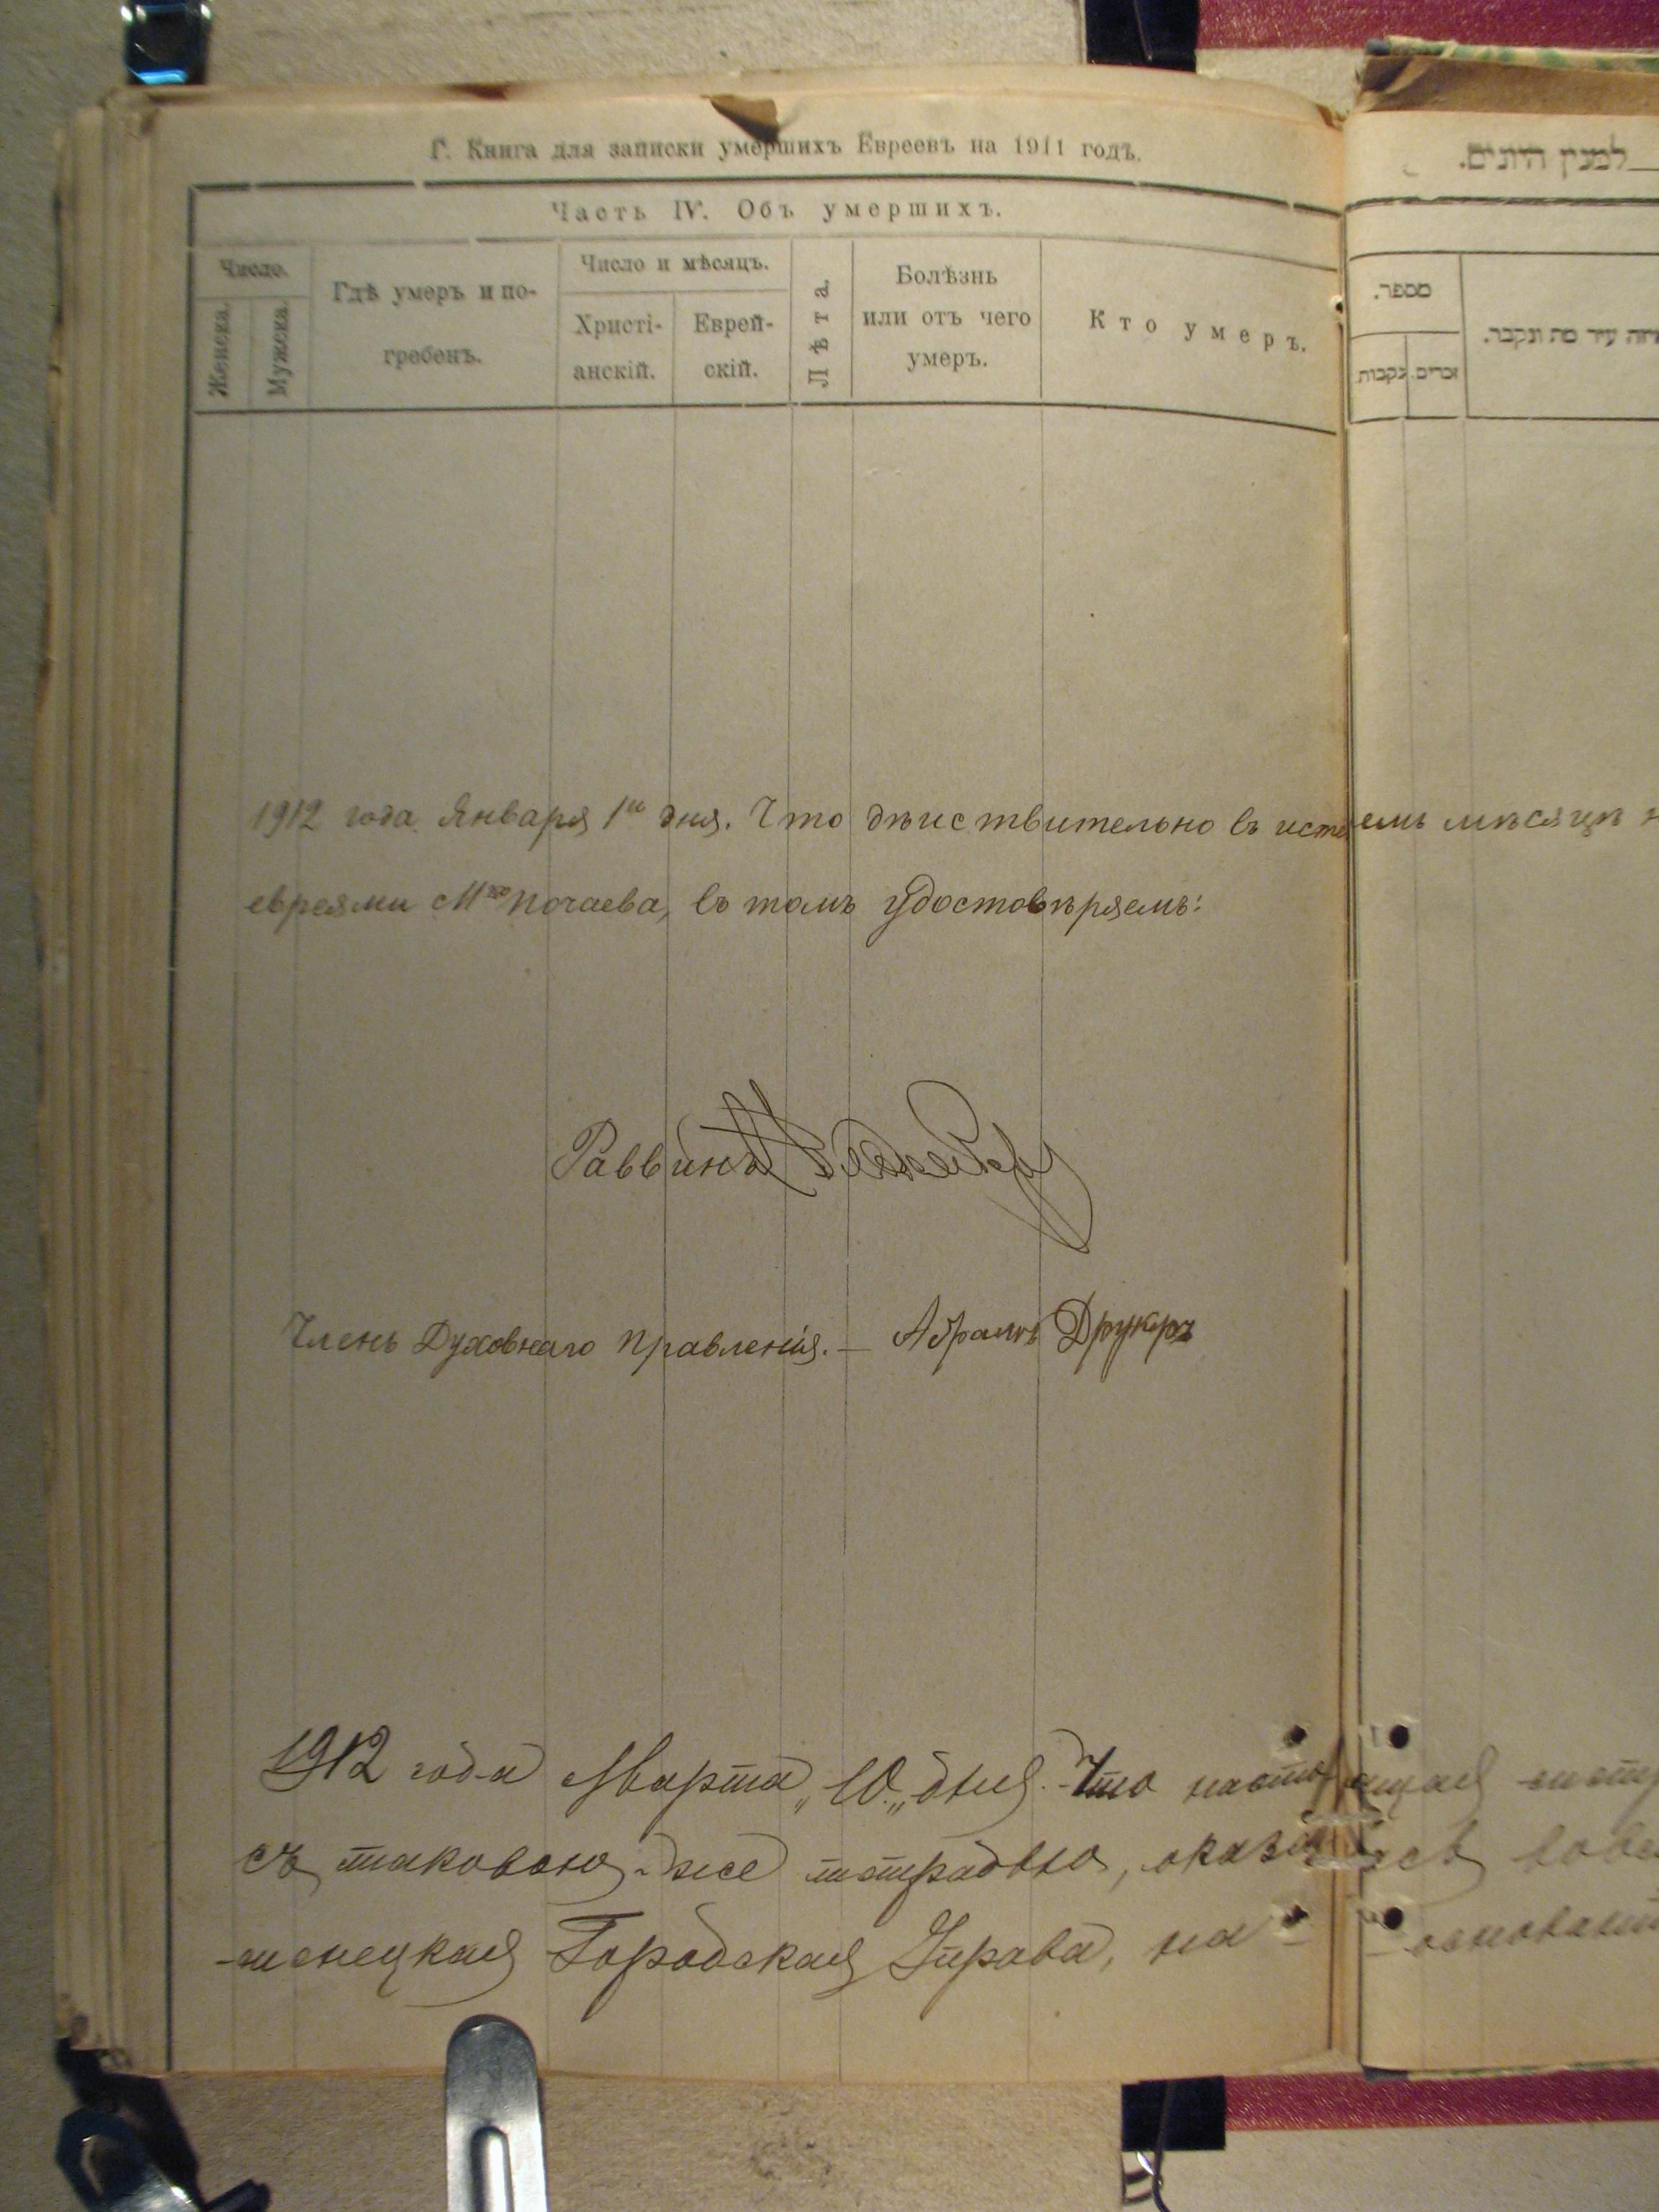 Г. Книга для записки умершихъ Евреевъ на 1911 годъ.
Часть IV. Объ умершихъ.
Число.
Женска.
Мужеска.
Гдѣ умеръ и по-
гребенъ.
Число и мѣсяцъ.
Христі-
анскій.
Еврей-
скій.
Лѣта.
Болѣзнь
или отъ чего
умеръ.
Кто умеръ.
למנין היונים.
מספר.
נקבות.
זכרים.
עיר מת ונקבר.
1912 года Января 1го дня. Что дѣйствительно въ истекшемъ мѣсяцѣ
евреями Мка Почаева, въ томъ удостовѣряемъ:
Раввинъ
Членъ Духовнаго Правленія. — Абрамъ Друкеръ
1912 года Марта „10„ дня. Что настоящая
съ таковою-же тетрадью, оказалась
-менецкая Городская Управа, на - - основаніи